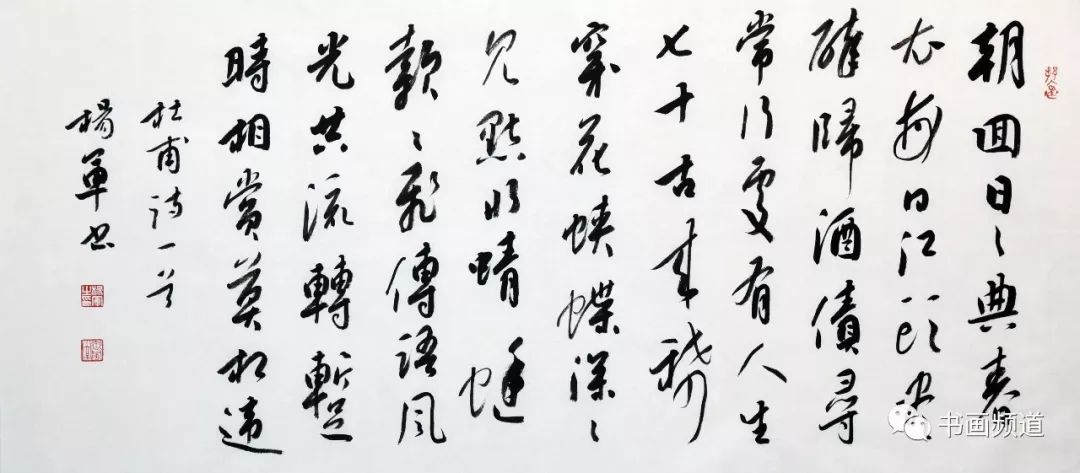 朝回日〻典春
衣每日江頭盡
醉歸酒債尋
常行處有人生
七十古来稀
穿花蛺蝶深〻
見點水蜻蜓
款〻飛傳語風
光共流轉暫
時相賞莫相違
杜甫诗一首
楊軍书
书画频道